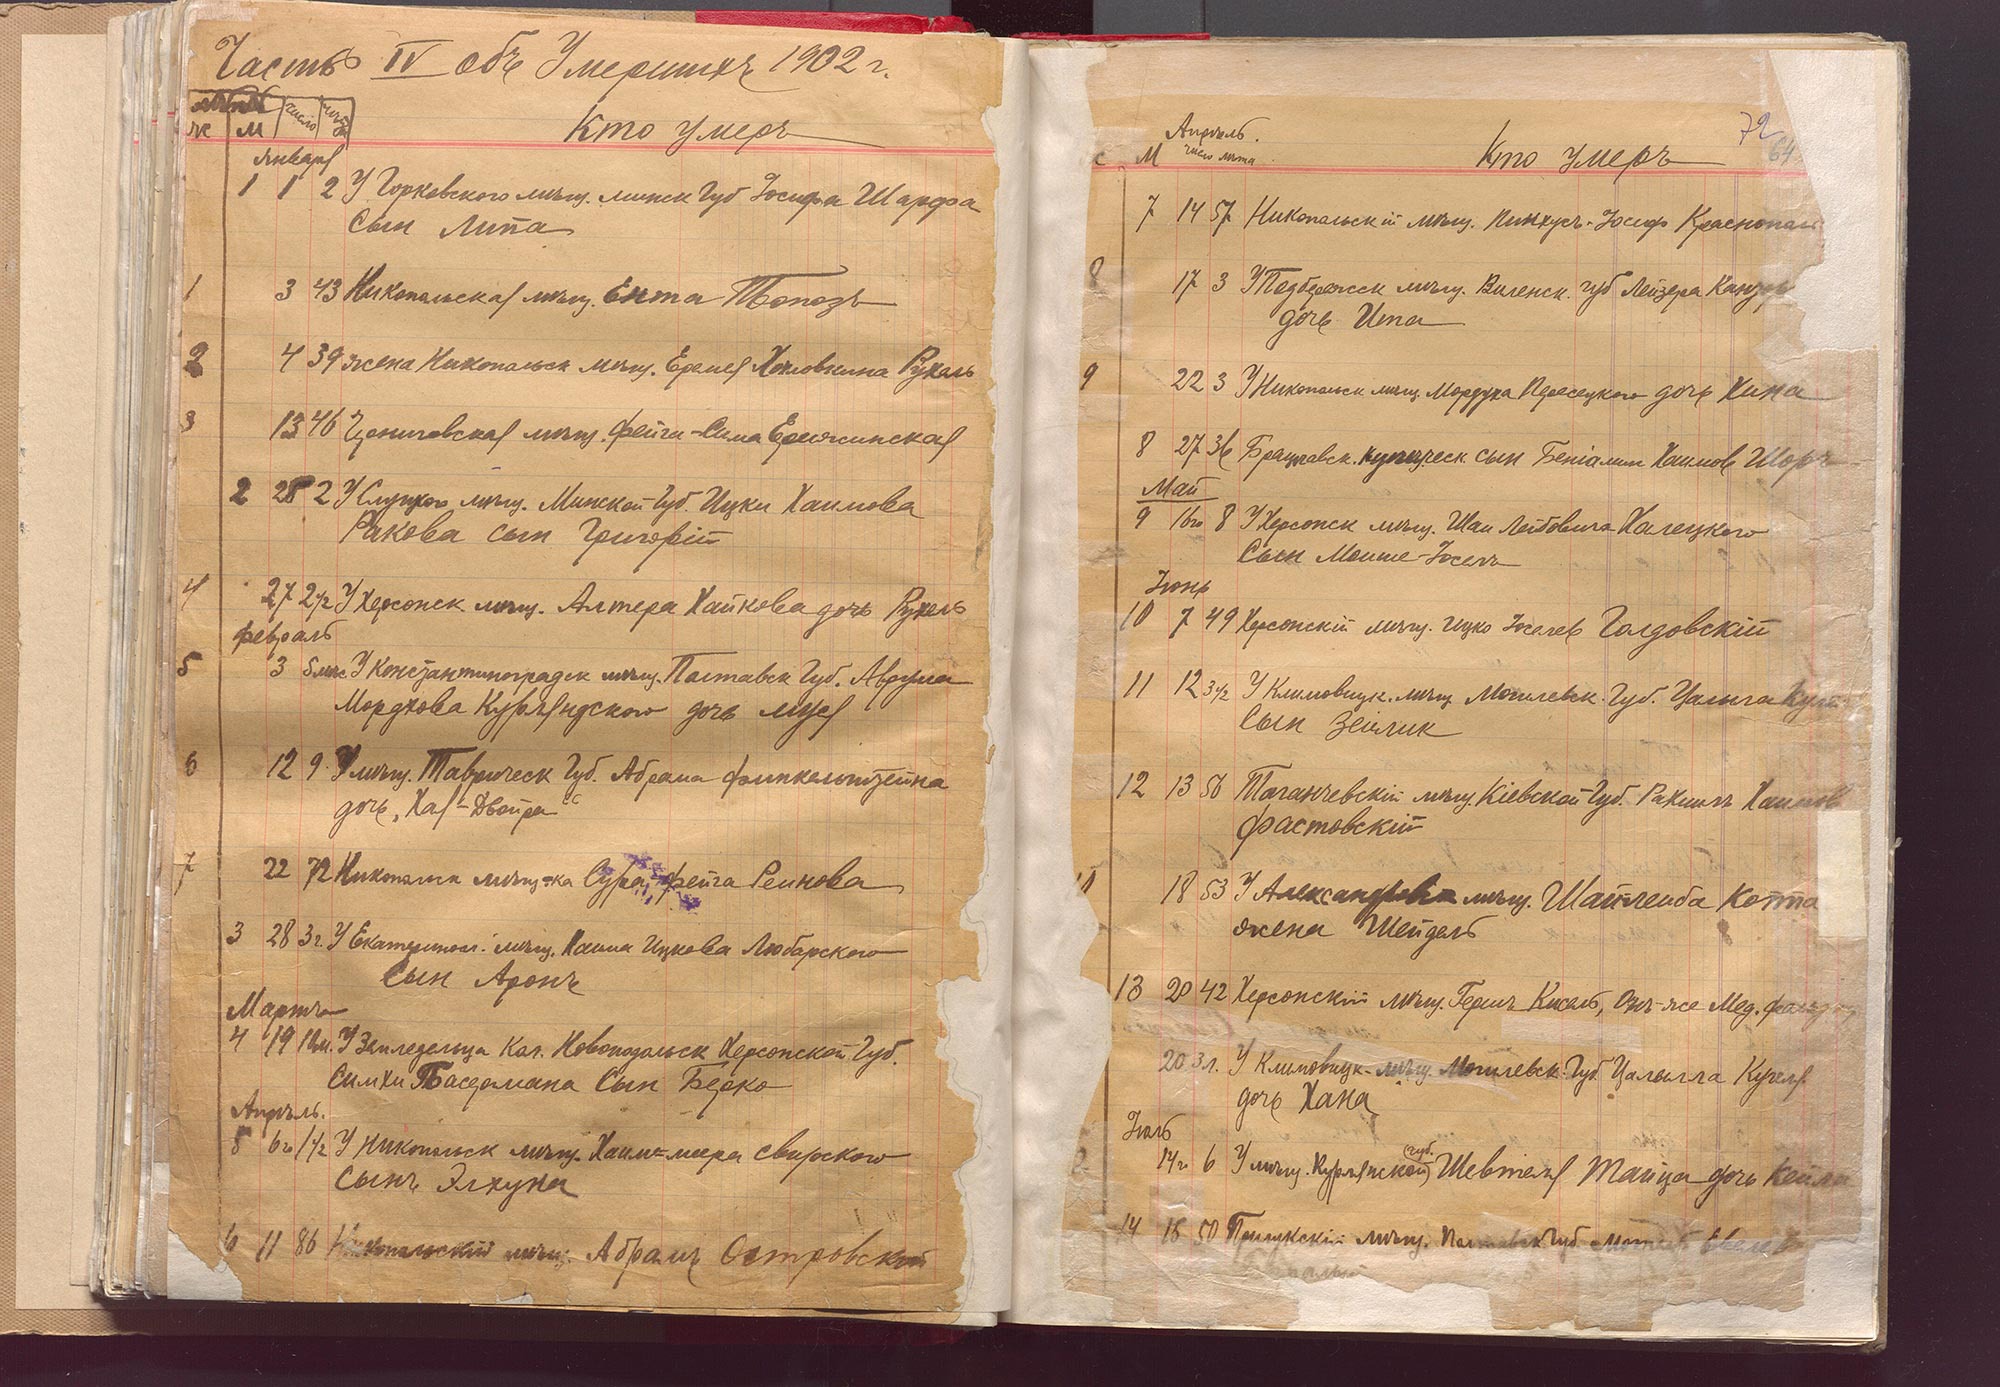 Часть IV объ Умершихъ 1902 г.
число
ж м
Кто умеръ
Январь
1 1 2 У Горковского мѣщ. Минск Губ Іосифа Шарфа
Сын Липа
1 3 43 Никопольская мѣщ. Ента Топозъ
2 4 39 жена Никопольск мѣщ. Рухль
3 13 46 мѣщ. Фейги-Сима
2 25 2 У Слуцкого мѣщ. Минской Губ. Ицки Хаимова
Ракова сын Григорій
4 27 2 1/2 У Херсонск мѣщ. Алтера Хайкова дочь Рухель
Февраль
5 3 5 мѣс У Константиноградск мѣщ. Полтавск Губ. Аврума
Мордхова Курляндского дочь Муся
6 12 9 У мѣщ. Таврическ Губ. Абрама Финкельштейна
дочь „Хая-Двойра“
7 22 72 Никопольск мѣщ-ка Сура, Фейга Реинова
3 28 3 г. У Екатериносл. мѣщ. Хаима Ицкова Любарского
Сын Аронъ
Мартъ
4 19 У Земледельца Кол. Новоподольск Херсонской Губ.
Симхи Басермана Сын Берко
Апрѣль.
5 6го 1 1/2 У Никопольск мѣщ. Хаим-меера Свирского
Сынъ Элхуна
6 11 86 Никопольский мѣщ. Абрамъ Островский
72
64
Апрѣль.
М число лѣта
Кто умеръ
7 14 57 Никопольскій мѣщ. Пинхусъ-Іосиф Краснополь
8 17 3 У Подбережск мѣщ. Виленск. Губ Лейзера
дочь Ита
9 22 3 У Никопольск мѣщ. Мордуха Пересецкого дочь Хина
8 27 36 Брацлавск. купеческ сын Беніамин Хаимов Шоръ
Май
9 16го 8 У Херсонск мѣщ. Шаи Лейбовича Халецкого
Сын Моише-Іосель
Іюнь
10 7 49 Херсонскій мѣщ. Ицко Іоселев Голдовскій
11 12 3 1/2 У Климовицк. мѣщ. Могилевск. Губ. Цалыга
Сын Зейлик
12 13 56 Таганчевскій мѣщ. Кіевской Губ. Рахмиль Хаимов
Фастовскій
18 53 У Александровск мѣщ. Шайлейба Котта
жена Шейдель
13 20 42 Херсонскій мѣщ. Гершъ Кисель, Онъ-же Мед.
20 3 л. У Климовицк- мѣщ. Могилевск Губ Цалыга Кугель
дочь Хана
Іюль
14го 6 У мѣщ. Курлянской (губ.) Шевтеля Тайца дочь Кейла
14 16 50 мѣщ. Полтавск Губ